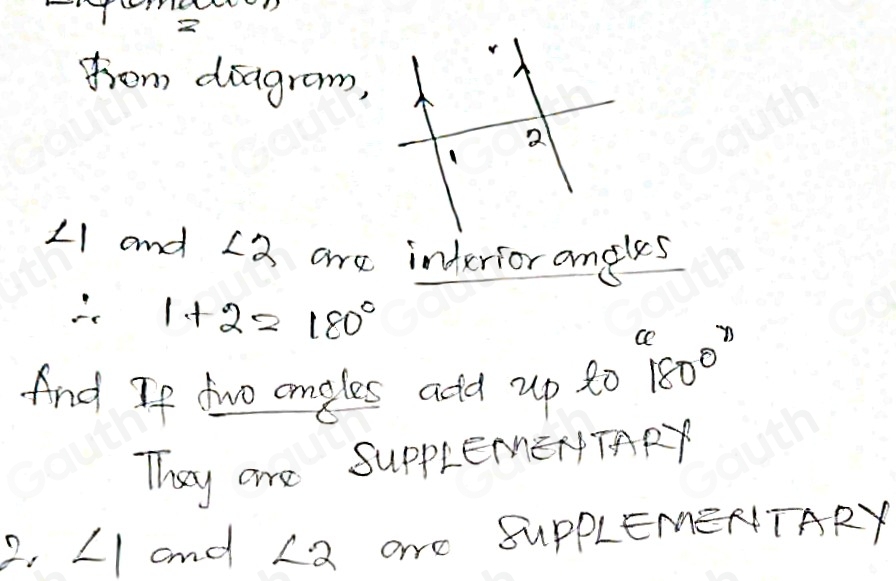 From diagram,
1
2
∠1 and ∠2 are interior angles
∴ 1+2= 180°
And If two angles add up to "180°"
They are SUPPLEMENTARY
2. ∠1 and ∠2 are SUPPLEMENTARY